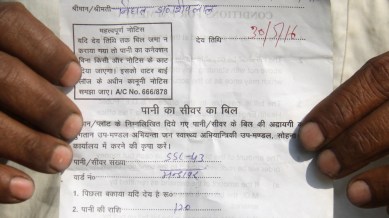 श्रीमान/श्रीमती
महत्वपूर्ण नोटिस
यदि देय तिथि तक बिल जमा न
कराया गया तो पानी का कनेक्शन
बिना किसी और नोटिस के काट
दिया जाएगा। इसको वाटर बाई
लॉज के अधीन कानूनी नोटिस
समझा जाए। A/C No. 666/878
देय तिथि 30/5/16
पानी का सीवर का बिल
/प्लाट के निम्नलिखित दिये गए पानी/सीवर के बिल की अदायगी
उप-मण्डल अभियन्ता जन स्वास्थ्य अभियान्त्रिकी उप-मण्डल, सोहना
कार्यालय में करने की कृपा करें।
पानी/सीवर संख्या SSL-43
वार्ड नं०
1. पिछला बकाया यदि देय है रू०
2. पानी की राशि 120